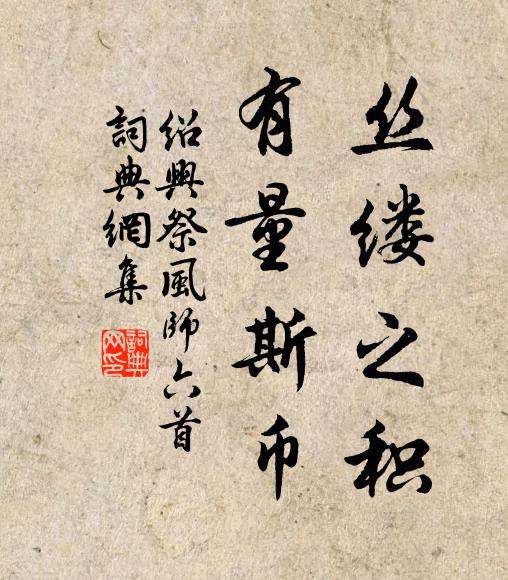 丝缕之积
有量斯币
绍興祭風师六首
詞典網集
詞典
网印